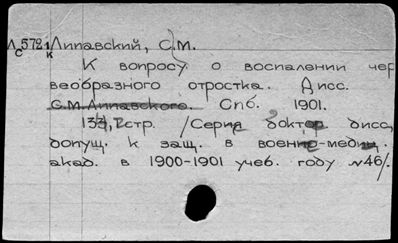 Л 5721 Липавский, С.М.
С к
К вопросу о воспалении чер
веобразного отростка. Дисс.
С.М.Липавского. Спб. 1901.
стр. /Серия доктор дисс,
допущ. к защ. в военно-медиц.
акад. в 1900-1901 учеб. году №46/.